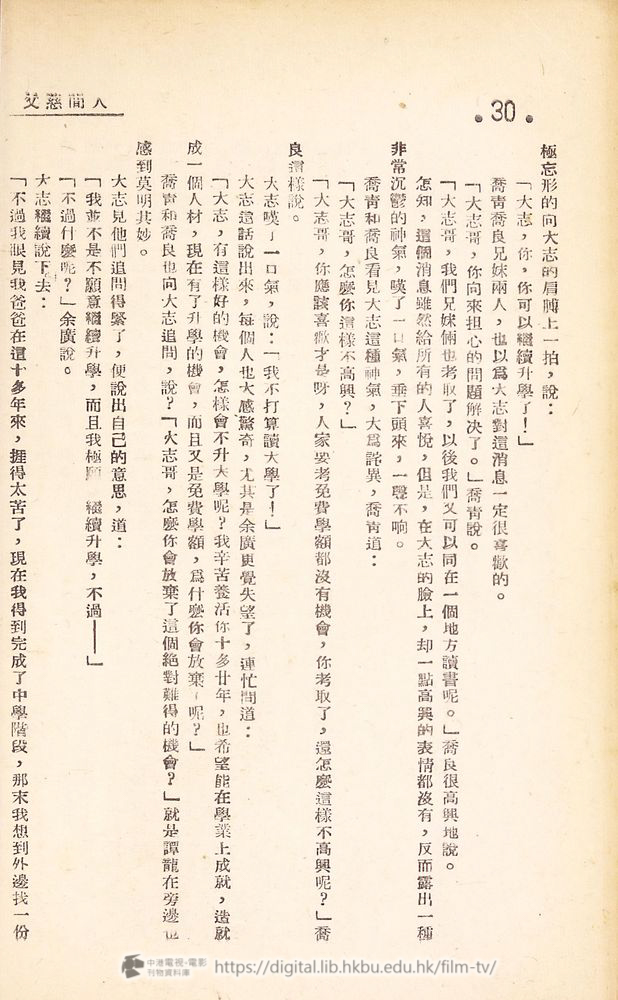 人間慈父
.30.
極忘形的向大志的肩膊上一拍，說：
「大志，你，你可以繼續升學了！」
喬青喬良兄妹兩人，也以爲大志對這消息一定很喜歡的。
「大志哥，你向來担心的問題解决了。」喬青說。
「大志哥，我們兄妹倆也考取了，以後我們又可以同在一個地方讀書呢。」喬良很高興地說。
怎知，這個消息雖然給所有的人喜悅，但是，在大志的臉上，却一點高興的表情都沒有，反而露出一種
非常沉鬱的神氣，嘆了一口氣，垂下頭來，一聲不响。
喬青和喬良看見大志這種神氣，大爲詫異，喬青道：
「大志哥，怎麽你這樣不高興？」
「大志哥，你應該喜歡才是呀，人家要考免費學額都沒有機會，你考取了，還怎麽這樣不高興呢？」喬
良這樣說。
大志嘆了一口氣，說：「我不打算讀大學了！」
大志這話說出來，每個人也大感驚奇，尤其是余廣更覺失望了，連忙問道：
「大志，有這樣好的機會，怎樣會不升大學呢？我辛苦養活你十多廿年，也希望能在學業上成就，造就
成一個人材，現在有了升學的機會，而且又是免費學額，爲什麽你會放棄呢？」
喬青和喬良也向大志追問，說？「大志哥，怎麽你會放棄了這個絕對難得的機會？」就是譚龍在旁邊也
感到莫明其妙。
大志見他們追問得緊了，便說出自己的意思，道：
「我並不是不願意繼續升學，而且我極願　繼續升學，不過——」
「不過什麽呢？」余廣說。
大志繼續說下去：
「不過我眼見我爸爸在這十多年來，捱得太苦了，現在我得到完成了中學階段，那末我想到外邊找一份
中港電視·電影
刊物資料庫
https://digital.lib.hkbu.edu.hk/film-tv/